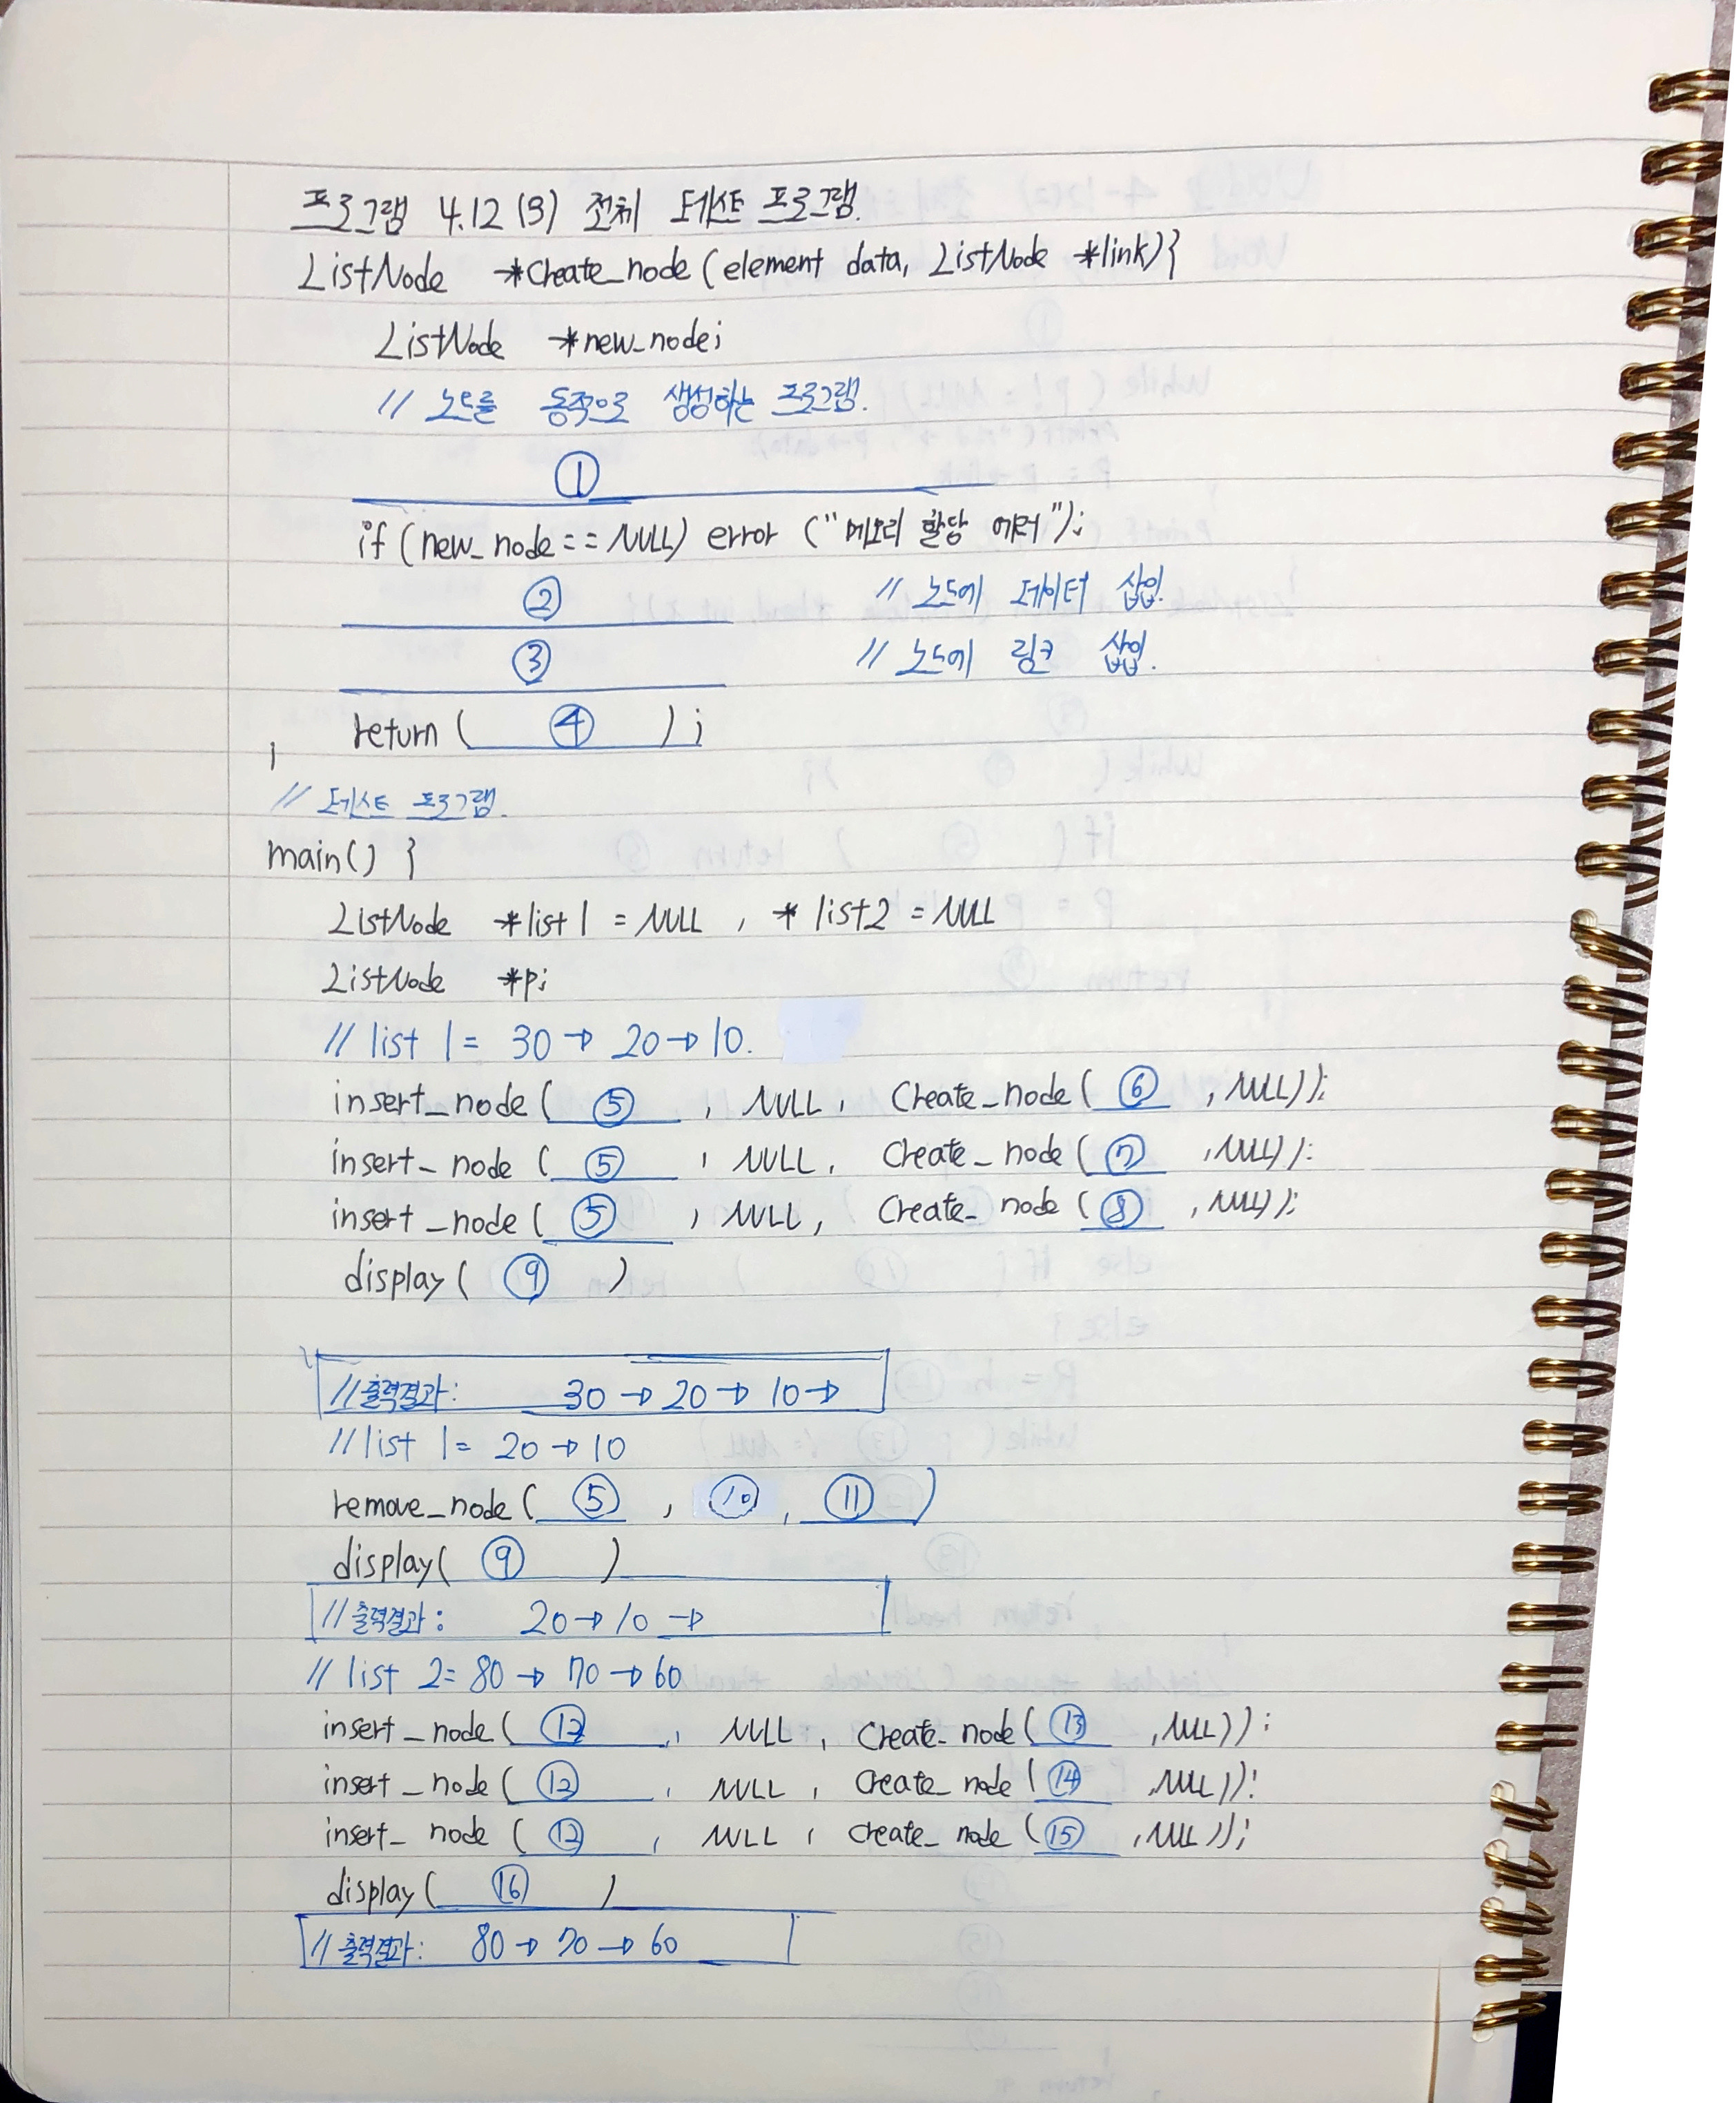 프로그램 4.12 (3) 전체 테스트 프로그램.
ListNode *Create_node (element data, ListNode *link){
ListNode *new_node;
// 노드를 동적으로 생성하는 프로그램.
①
if (new_node == NULL) error ("메모리 할당 에러");
② // 노드에 데이터 삽입.
③ // 노드에 링크 삽입.
return ( ④ );
}
// 테스트 프로그램.
main() {
ListNode *list1 = NULL, * list2 = NULL
ListNode *p;
// list 1 = 30 → 20 → 10.
insert_node ( ⑤ , NULL, Create_node ( ⑥ , NULL));
insert_node ( ⑤ , NULL, Create_node ( ⑦ , NULL));
insert_node ( ⑤ , NULL, Create_node ( ⑧ , NULL));
display ( ⑨ )
// 출력결과: 30 → 20 → 10 →
// list 1 = 20 → 10
remove_node ( ⑤ , ⑩ , ⑪ )
display( ⑨ )
// 출력결과: 20 → 10 →
// list 2 = 80 → 70 → 60
insert_node ( ⑫ , NULL, Create_node ( ⑬ , NULL));
insert_node ( ⑫ , NULL, Create_node ( ⑭ , NULL));
insert_node ( ⑫ , NULL, Create_node ( ⑮ , NULL));
display ( ⑯ )
// 출력결과: 80 → 70 → 60